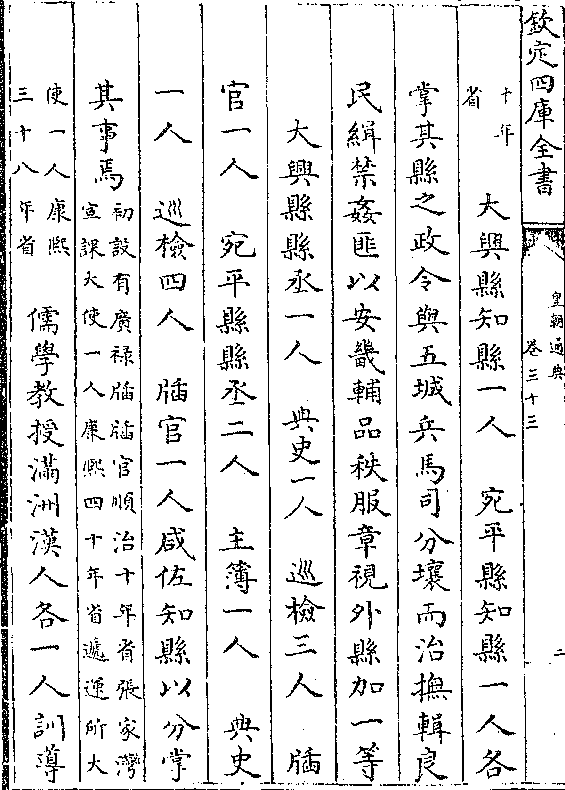 欽定四庫全書
皇朝通典
卷三十三
二
十年
省
大興縣知縣一人　宛平縣知縣一人各
掌其縣之政令與五城兵馬司分壤而治撫輯良
民緝禁姦匪以安畿輔品秩服章視外縣加一等
大興縣縣丞一人　典史一人　巡檢三人　牐
官一人　宛平縣縣丞二人　主簿一人　典史
一人　巡檢四人　牐官一人咸佐知縣以分掌
其事焉
初設有廣祿牐牐官順治十年省張家灣
宣課大使一人康熙四十年省遞運所大
使一人康熙
三十八年省
儒學教授滿洲漢人各一人訓導